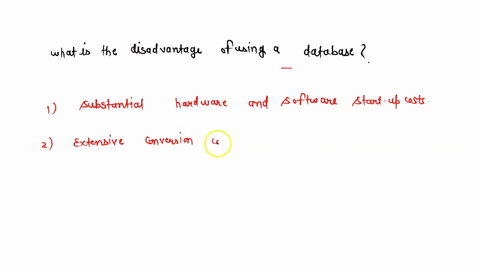 what is the disadvantage of using a database?.
1) substantial hardware and software start-up costs.
2) Extensive conversion